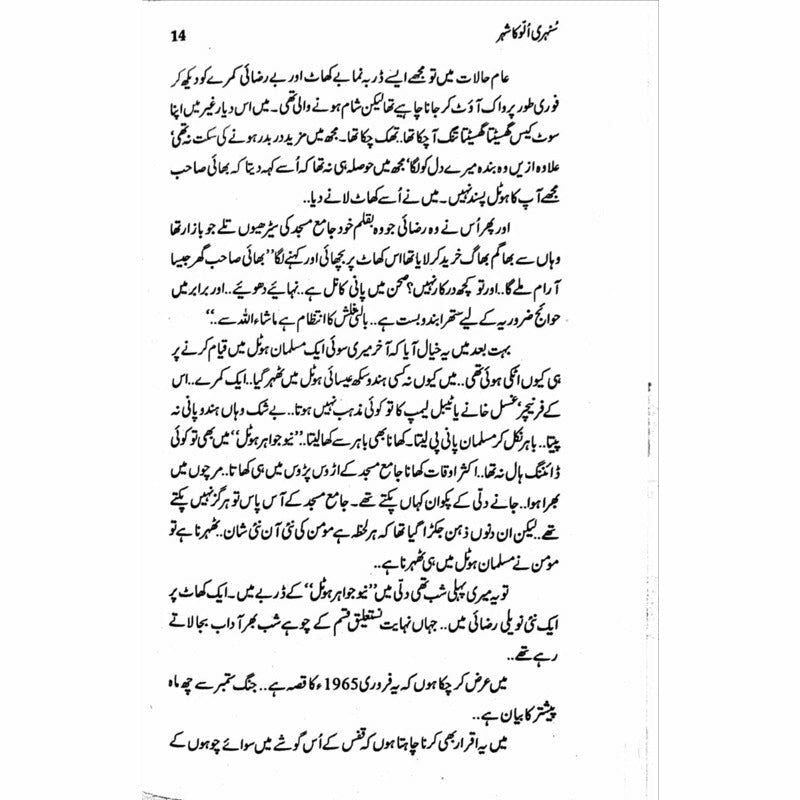 سنہری اُلّو کا شہر
14
عام حالات میں تو مجھے ایسے ڈربہ نما بے کھاٹ اور بے رضائی کمرے کو دیکھ کر
فوری طور پر واک آؤٹ کر جانا چاہیے تھا لیکن شام ہونے والی تھی۔ میں اس دیار غیر میں اپنا
سوٹ کیس گھسیٹتا گھسیٹتا تنگ آ چکا تھا.. تھک چکا تھا۔ مجھ میں مزید در بدر ہونے کی سکت نہ تھی'
علاوہ ازیں وہ بندہ میرے دل کو لگا' مجھ میں حوصلہ ہی نہ تھا کہ اُسے کہہ دیتا کہ بھائی صاحب
مجھے آپ کا ہوٹل پسند نہیں۔ میں نے اُسے کھاٹ لانے دیا..
اور پھر اُس نے وہ رضائی جو وہ بقلم خود جامع مسجد کی سیڑھیوں تلے جو بازار تھا
وہاں سے بھاگم بھاگ خرید کر لایا تھا اس کھاٹ پر بچھائی اور کہنے لگا ”بھائی صاحب گھر جیسا
آرام ملے گا.. اور تو کچھ درکار نہیں؟ صحن میں پانی کا نل ہے.. نہائیے دھوئیے.. اور برابر میں
حوائج ضروریہ کے لیے ستھرا بندوبست ہے.. بالٹی فلش کا انتظام ہے ماشاء اللہ سے..“
بہت بعد میں یہ خیال آیا کہ آخر میری سوئی ایک مسلمان ہوٹل میں قیام کرنے پر
ہی کیوں اٹکی ہوئی تھی.. میں کیوں نہ کسی ہندو سکھ عیسائی ہوٹل میں ٹھہر گیا.. ایک کمرے.. اس
کے فرنیچر' غسل خانے یا ٹیبل لیمپ کا تو کوئی مذہب نہیں ہوتا.. بے شک وہاں ہندو پانی نہ
پیتا.. باہر نکل کر مسلمان پانی پی لیتا۔ کھانا بھی باہر سے کھا لیتا.. ”نیو جواہر ہوٹل“ میں بھی تو کوئی
ڈائننگ ہال نہ تھا.. اکثر اوقات کھانا جامع مسجد کے اڑوس پڑوس میں ہی کھاتا.. مرچوں میں
بھرا ہوا.. جانے دلّی کے پکوان کہاں پکتے تھے۔ جامع مسجد کے آس پاس تو ہرگز نہیں پکتے
تھے.. لیکن ان دنوں ذہن جکڑا گیا تھا کہ ہر لحظہ ہے مؤمن کی نئی آن نئی شان.. ٹھہرنا ہے تو
مؤمن نے مسلمان ہوٹل میں ہی ٹھہرنا ہے..
تو یہ میری پہلی شب تھی دلّی میں ”نیو جواہر ہوٹل“ کے ڈربے میں۔ ایک کھاٹ پر
ایک نئی نویلی رضائی میں.. جہاں نہایت نستعلیق قسم کے چوہے شب بھر آداب بجا لاتے
رہے تھے..
میں عرض کر چکا ہوں کہ یہ فروری 1965ء کا قصہ ہے.. جنگ ستمبر سے چھ ماہ
پیشتر کا بیان ہے..
میں یہ اقرار بھی کرنا چاہتا ہوں کہ قفس کے اُس گوشے میں سوائے چوہوں کے